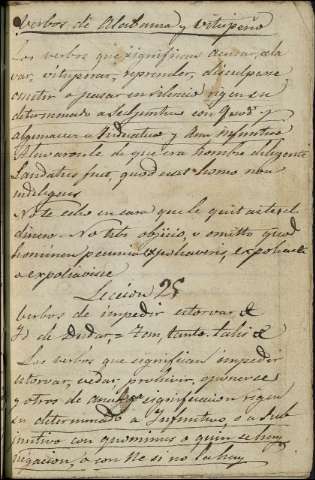 Verbos de Alabanza y Vituperio
Los verbos que significan acusar, ala
var, vituperar, reprender, disculpar
omitir o pasar en silencio rigen su
determinado a Subjuntivo con quod y
alguna vez a Indicativo y aun Infinitivo
Alavaronle de que era hombre diligente
Laudatus fuit, quod esset homo non
indiligens
No te echo en cara que le quitaste el
dinero. No tibi objicio, o omitto quod
hominem pecunia expoliaveris, expoliasti
o expoliavisse
Lección 25
Verbos de impedir estorvar, &
Id de Dudar, = Tam, tanto. talis &
Los verbos que significan impedir
estorvar, vedar, prohivir, oponerse
y otros de significacion rigen
su determinado a Infinitivo, o a Sub
juntivo con quominus o quin si hay
negacion, o con Ne si no la hay